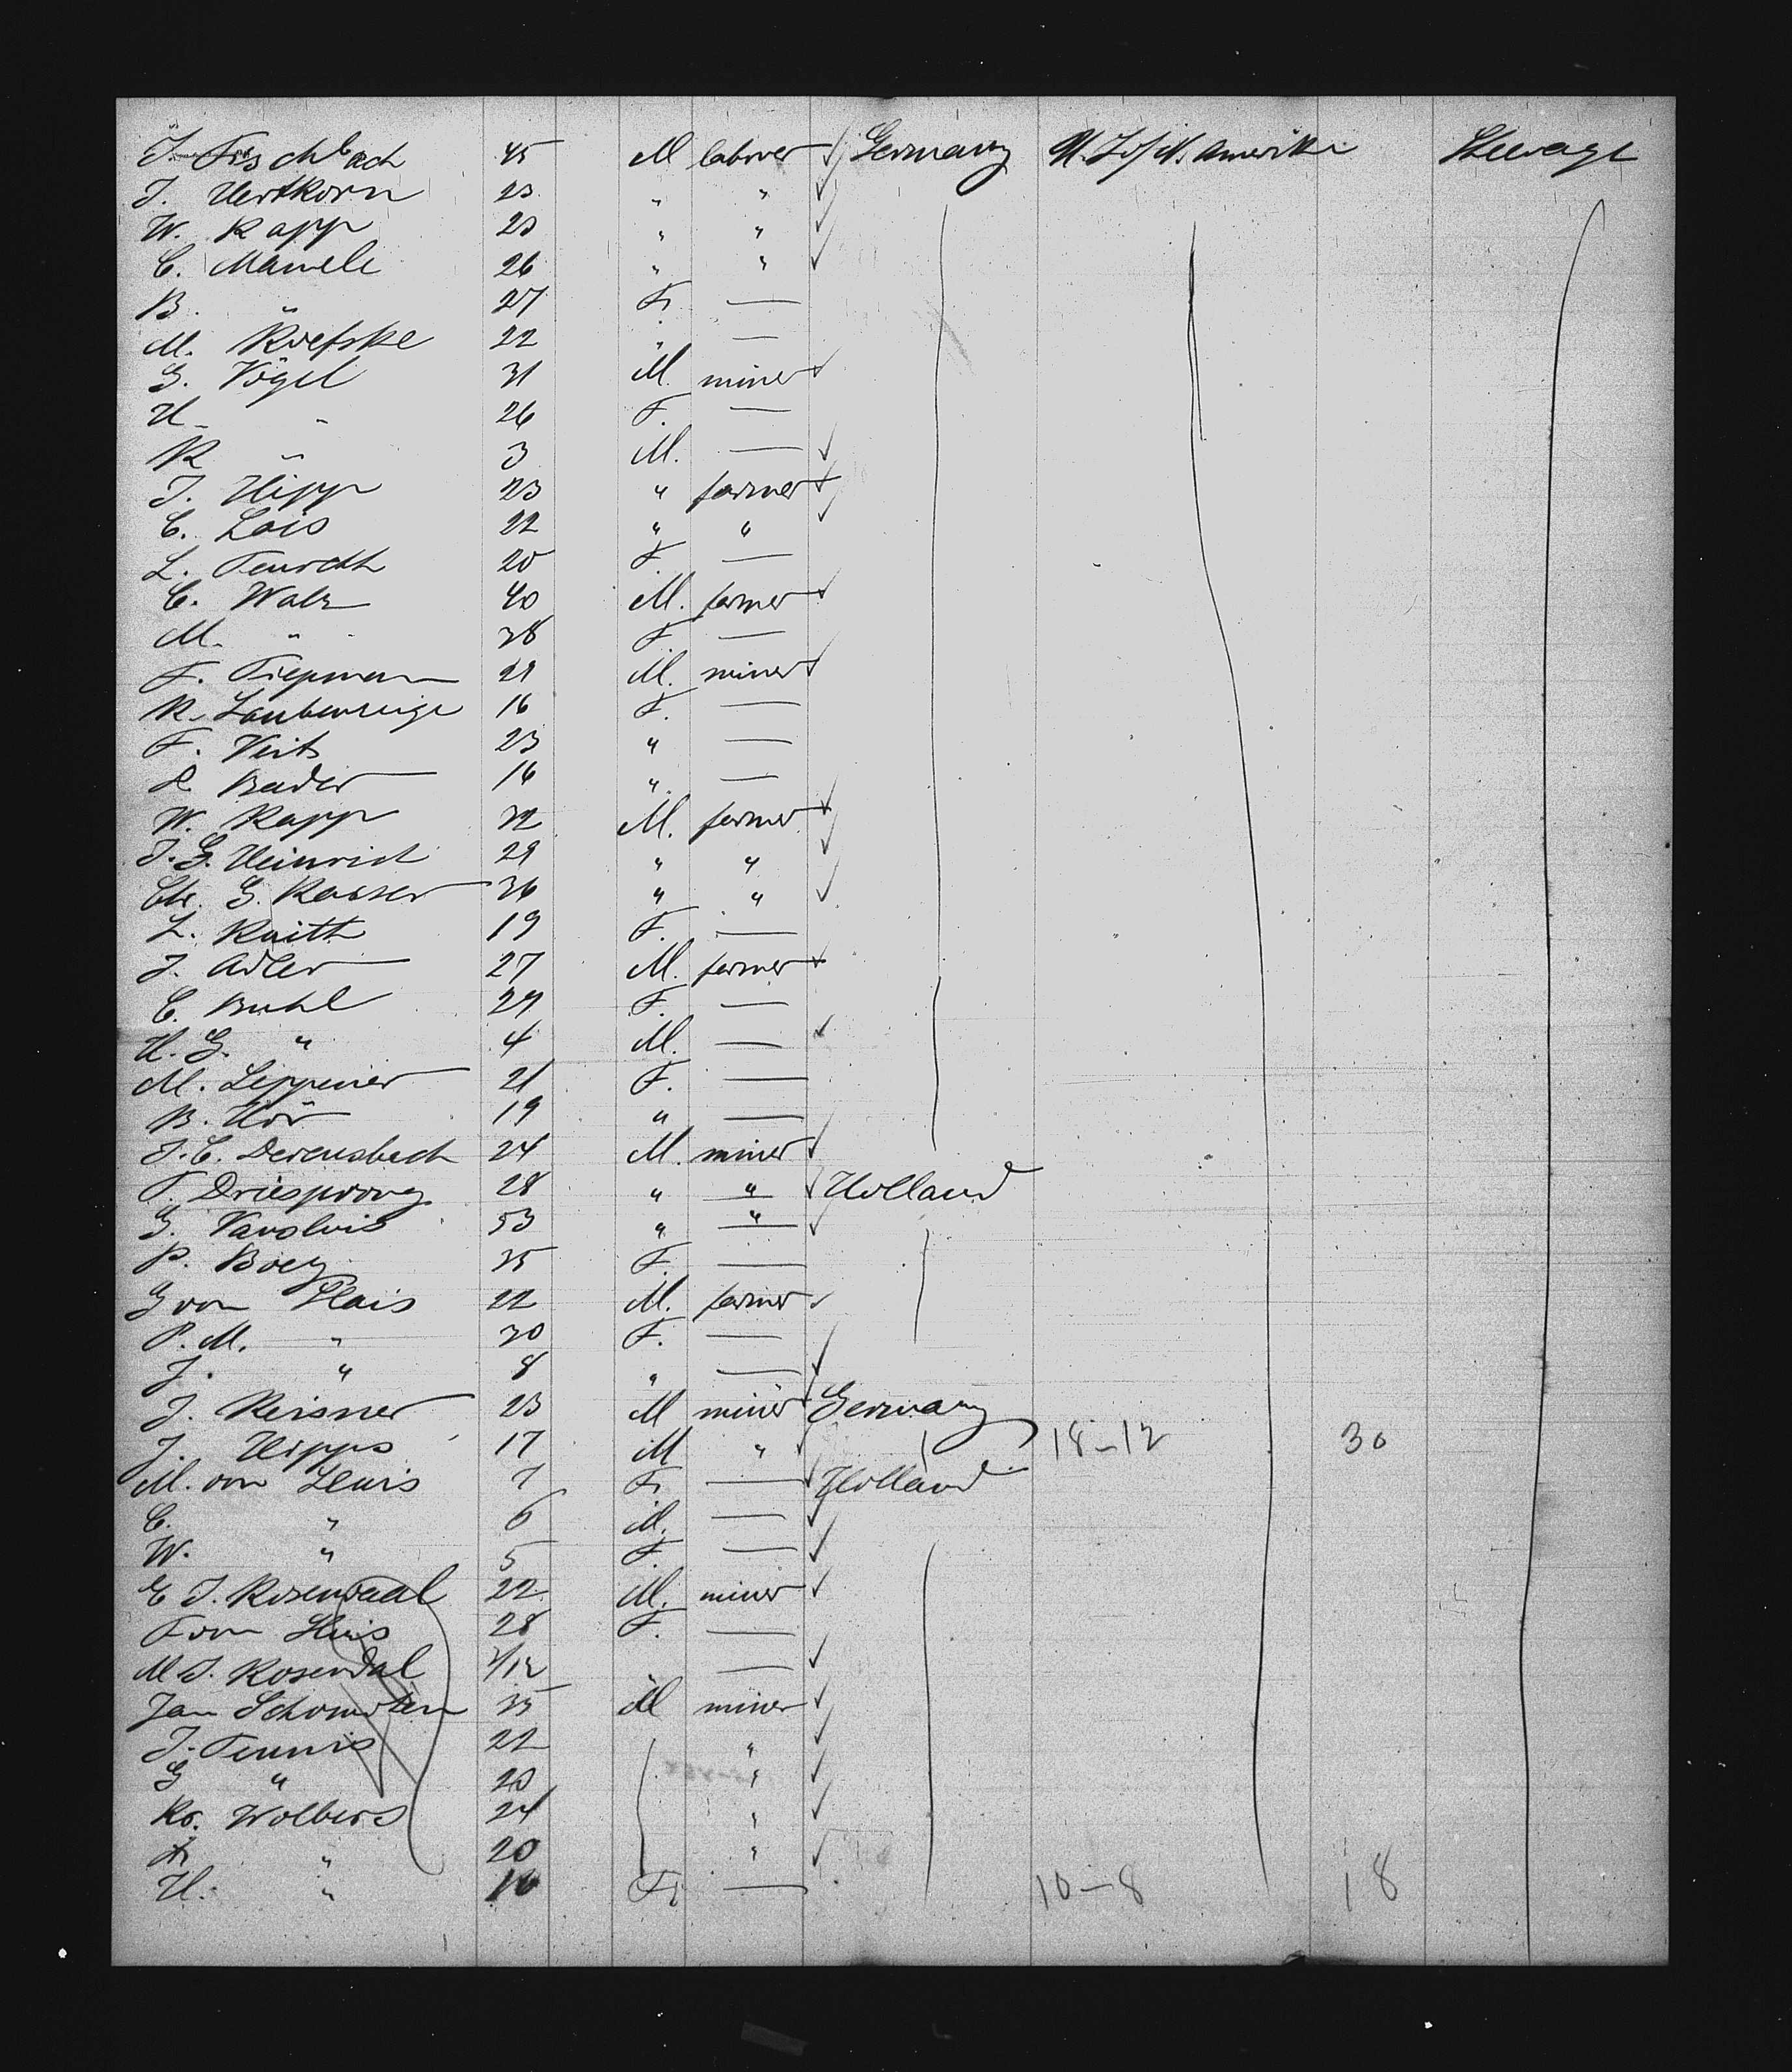 J. Fischbach 45 M laborer Germany U. S. of N. Amerika Steerage
J. Hertkorn 23 " "
W. Rapp 23 " "
C. Mamele 26 " "
B. " 27 F. —
M. 22 " —
G. Vögel 31 M. miner
H. " 26 F. —
R. " 3 M. —
J. Hipp 23 " farmer
C. Lois 22 " "
L. 20 F. —
C. Walz 40 M. farmer
M. " 38 F. —
F. Tiepman 29 M. miner
R. 16 F. —
F. Veit 23 " —
R. Bader 16 " —
W. Rapp 32 M. farmer
J. G. Heinrich 29 " "
Chr. G. Rasser 36 " "
L. Raith 19 F. —
J. Adler 27 M. farmer
C. Buhl 29 F. —
H. G. " 4 M. —
M. Leppener 21 F. —
B. Hör 19 " —
J. C. 24 M. miner
T. Driesprong 28 " " Holland
G. 53 " "
P. Boey 35 F. —
G von 22 M. farmer
P. M. " 30 F. —
J. " 8 " —
J. Reisner 23 M miner Germany
J. Hipps 17 M " 18-12 30
M. von 7 F. — Holland
C. " 6 M. —
W. " 5 F. —
E J. Rosendaal 22 M. miner
F von 28 F. —
M J. Rosendal /12 —
Jan 35 M miner
J. Tennis 22 "
G " 20 "
Ko. Wolbers 24 "
A " 20 "
H. " 16 F. — 10-8 18